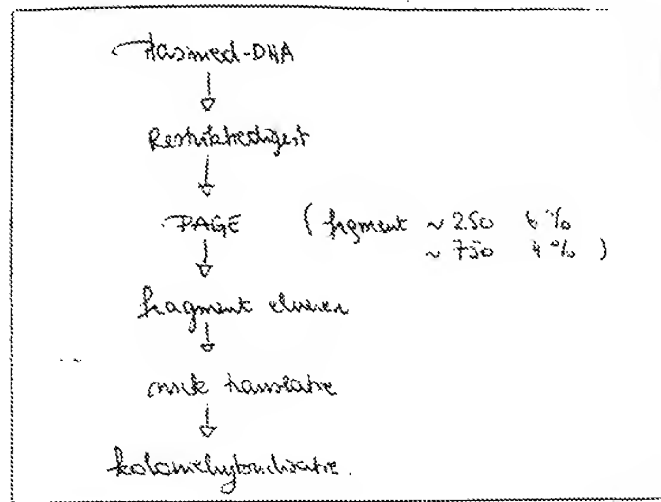 Plasmied-DNA
Restriktiedigest
PAGE ( fragment ~ 250 6%
~ 750 4% )
fragment elueren
nick translatie
koloniehybridisatie.